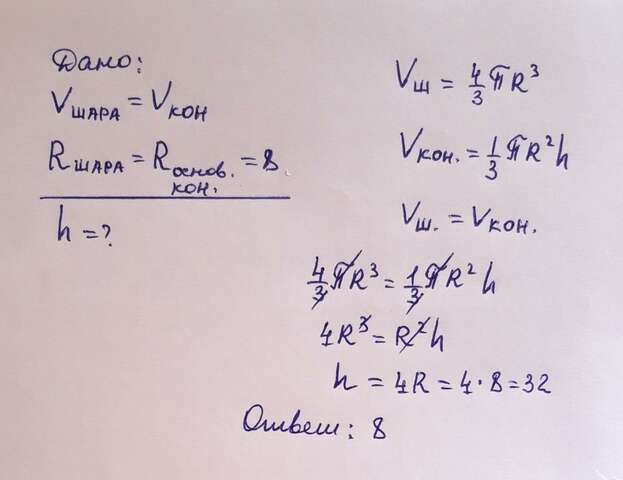 Дано:
Vшара = Vкон
Rшара = Rоснов. кон. = 8
h = ?
Vш = 4/3 πR³
Vкон. = 1/3 πR²h
Vш. = Vкон.
4/3 πR³ = 1/3 πR²h
4R³ = R²h
h = 4R = 4·8 = 32
Ответ: 8